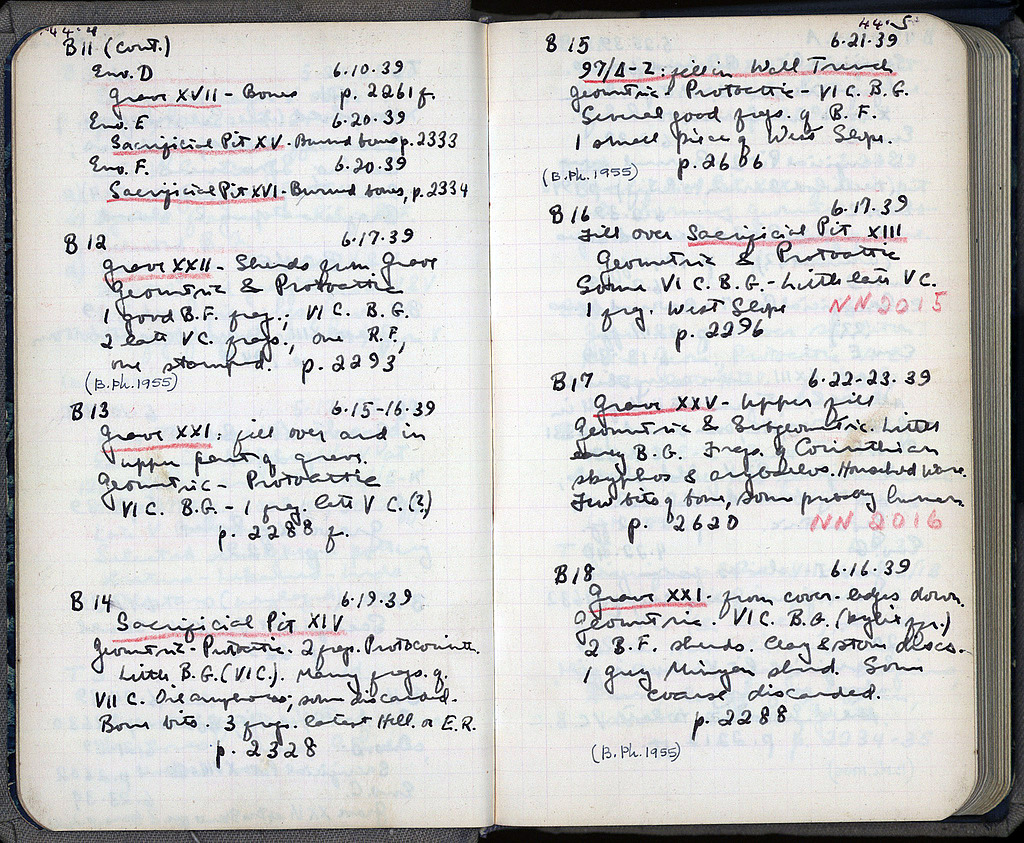 44.4
B 11 (cont.)
Env. D 6.10.39
Grave XVII - Bones p. 2261 f.
Env. E 6.20.39
Sacrificial Pit XV - Burned bones p. 2333
Env. F. 6.20.39
Sacrificial Pit XVI - Burned bones, p. 2334
B 12 6.17.39
Grave XXII - Sherds from Grave
Geometric & Protoattic
1 good B.F. frag.; VI C. B.G.
2 late V C. frags., one R.F.,
one stamped. p. 2293
(B.Ph. 1955)
B 13 6.15-16.39
Grave XXI: fill over and in
upper part of grave.
Geometric - Protoattic
VI C. B.G. - 1 frag. late V C. (?)
p. 2288 f.
B 14 6.19.39
Sacrificial Pit XIV
Geometric - Protoattic. 2 frag. Protocorinth.
Little B.G. (VI C.). Many frags. of
VII C. Oil amphoras; some discarded.
Bone bits. 3 frags. latest Hell. or E.R.
p. 2328
44.5
B 15 6.21.39
97/Δ-2: fill in Well Trench
Geometric - Protoattic - VI C. B.G.
Several good frags. of B.F.
1 small piece of West Slope.
p. 2606
(B.Ph. 1955)
B 16 6.17.39
Fill over Sacrificial Pit XIII
Geometric & Protoattic
Some VI C. B.G. - Little late V C.
1 frag. West Slope NN 2015
p. 2296
B 17 6.22-23.39
Grave XXV - Upper fill
Geometric & Subgeometric. Little
early B.G. Frags. of Corinthian
skyphos & aryballos. Household ware.
Few bits of bone, some probably human
p. 2620 NN 2016
B 18 6.16.39
Grave XXI - from cover-edges down.
Geometric. VI C. B.G. (kylix frr.)
2 B.F. sherds. Clay & stone discs.
1 grey Minyan sherd. Some
coarse discarded.
p. 2288
(B.Ph. 1955)